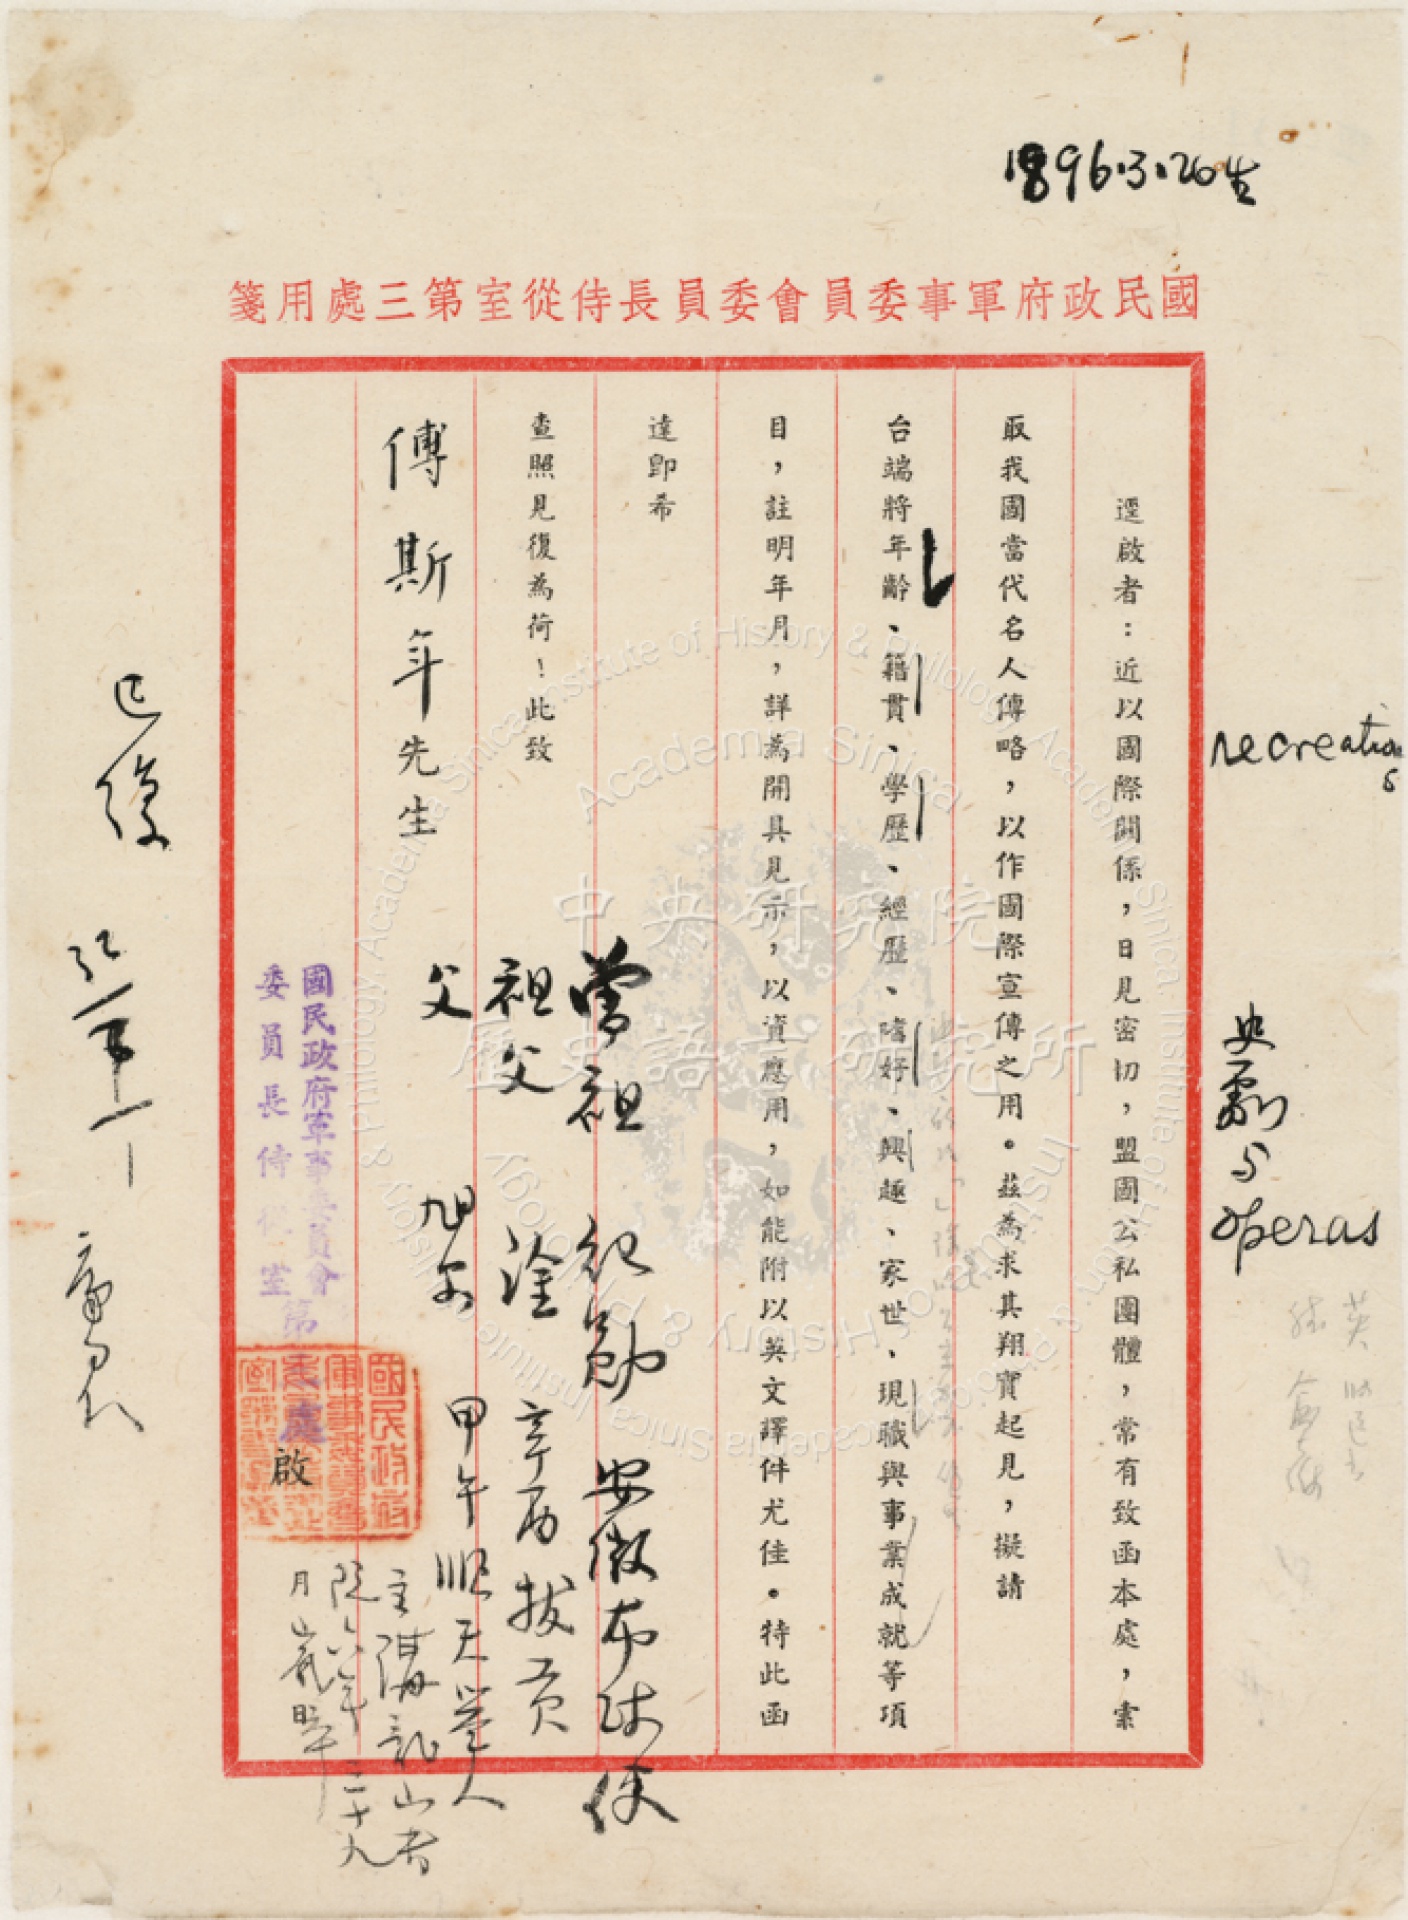 1896.3.26生
國民政府軍事委員會委員長侍從室第三處用箋
逕啟者：近以國際關係，日見密切，盟國公私團體，常有致函本處，索
取我國當代名人傳略，以作國際宣傳之用。茲為求其翔實起見，擬請
台端將年齡、籍貫、學歷、經歷、嗜好、興趣、家世、現職與事業成就等項
目，註明年月，詳為開具見示，以資應用，如能附以英文譯件尤佳。特此函
達卽希
查照見復為荷！此致
傅斯年先生
國民政府軍事委員會
委員長侍從室第三處
啟
recreations
史劇与
operas
曾祖 紀勛 安徽布政使
祖父 淦 辛酉拔貢
父 旭安 甲午順天舉人
主講龍山書
院六年 三十九
月歲時
已復
國民政府
中央研究院
歷史語言研究所
Academia Sinica
Institute of History & Philology, Academia Sinica